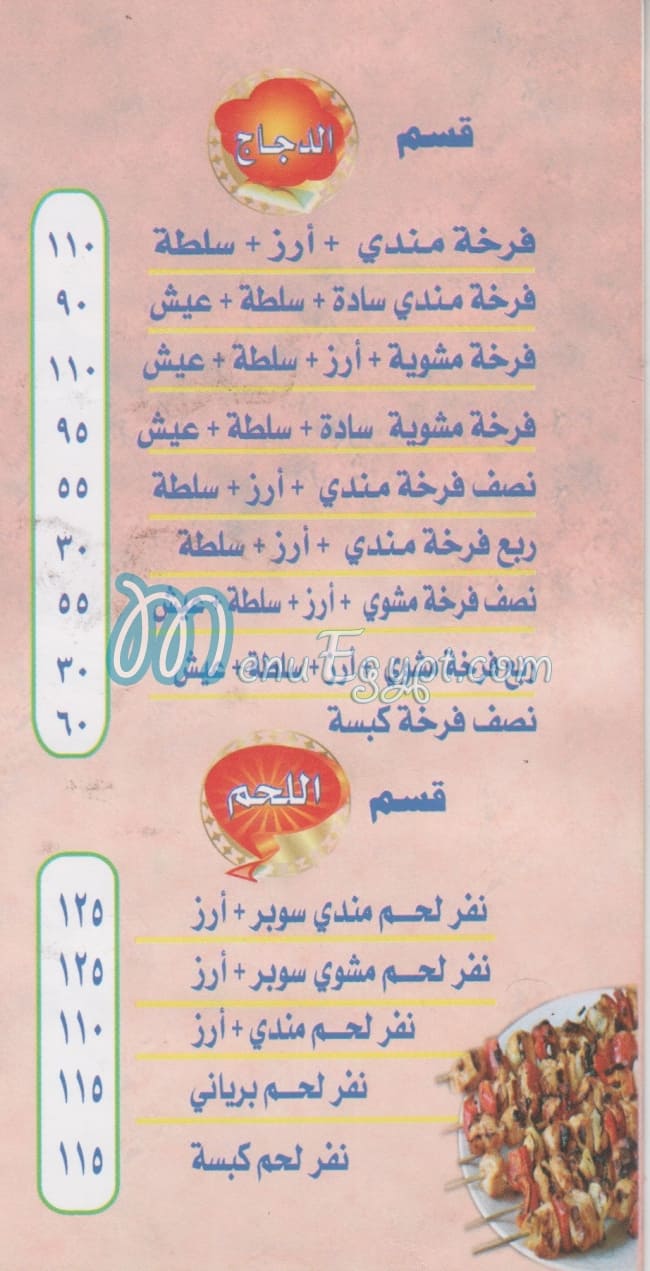 قسم الدجاج
فرخة مندي + أرز + سلطة ١١٠
فرخة مندي سادة + سلطة + عيش ٩٠
فرخة مشوية + أرز + سلطة + عيش ١١٠
فرخة مشوية سادة + سلطة + عيش ٩٥
نصف فرخة مندي + أرز + سلطة ٥٥
ربع فرخة مندي + أرز + سلطة ٣٠
نصف فرخة مشوي + أرز + سلطة + عيش ٥٥
ربع فرخة مشوي + أرز + سلطة + عيش ٣٠
MenuEgypt.com
نصف فرخة كبسة ٦٠
قسم اللحم
نفر لحم مندي سوبر + أرز ١٢٥
نفر لحم مشوي سوبر + أرز ١٢٥
نفر لحم مندي + أرز ١١٠
نفر لحم برياني ١١٥
نفر لحم كبسة ١١٥